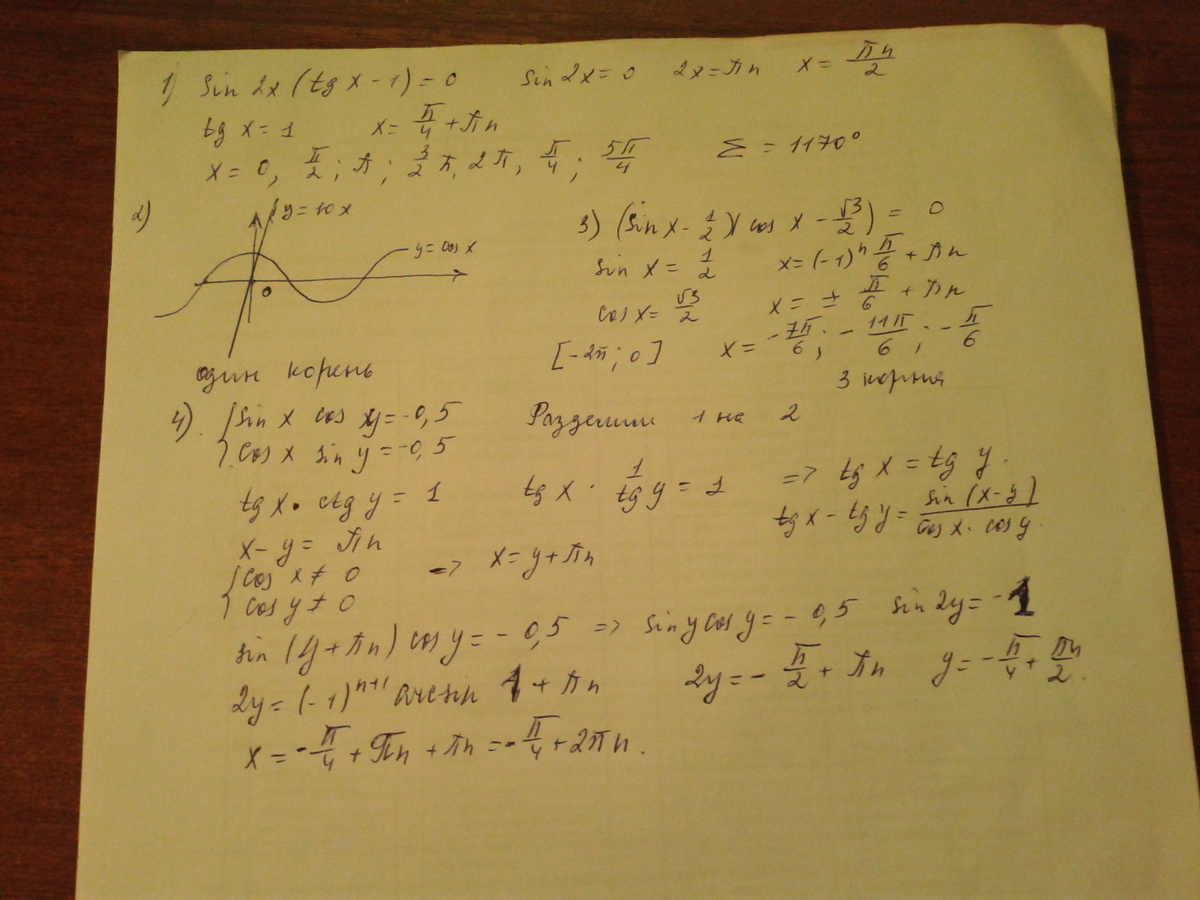 1) sin 2x (tg x - 1) = 0 sin 2x = 0 2x = πn x = πn/2
tg x = 1 x = π/4 + πn
x = 0, π/2; π; 3/2 π, 2π, π/4; 5π/4 Σ = 1170°
2) y = 10x
y = cos x
0
один корень
3) (sin x - 1/2)(cos x - √3/2) = 0
sin x = 1/2 x = (-1)ⁿ π/6 + πn
cos x = √3/2 x = ± π/6 + πn
[-2π; 0] x = -7π/6; -11π/6; -π/6
3 корня
4) { sin x cos y = -0,5 Разделим 1 на 2
cos x sin y = -0,5
tg x · ctg y = 1 tg x · 1/tg y = 1 => tg x = tg y.
tg x - tg y = sin (x-y)/cos x · cos y.
x - y = πn
{ cos x ≠ 0 => x = y + πn
cos y ≠ 0
sin (y + πn) cos y = -0,5 => sin y cos y = -0,5 sin 2y = -1
2y = (-1)ⁿ⁺¹ arcsin 1 + πn 2y = -π/2 + πn y = -π/4 + πn/2.
x = -π/4 + πn + πn = -π/4 + 2πn.